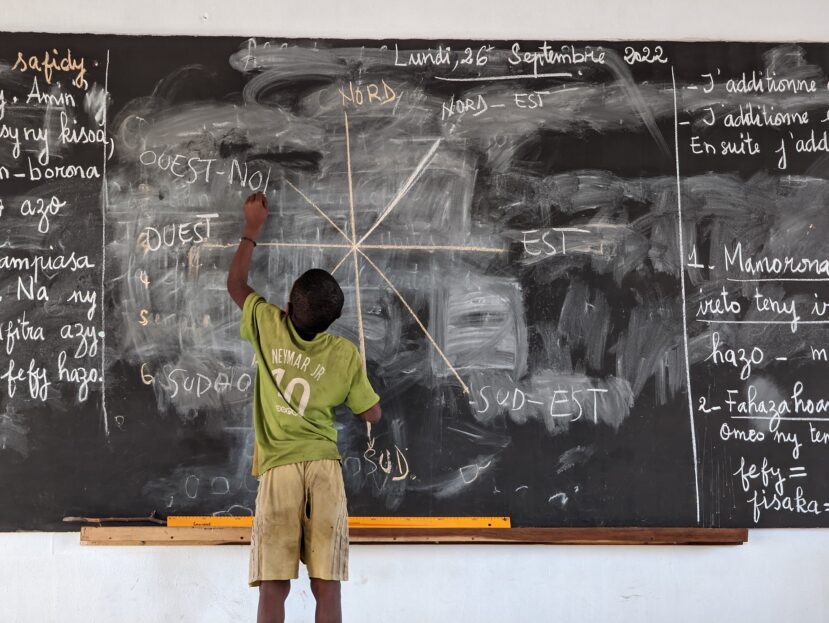 safidy.
Amin
ny kisoa,
n-borona
azo
ampiasa
Na ny
afitra azy.
fefy hazo.
Lundi, 26 Septembre 2022
NORD
NORD-EST
OUEST-NO
OUEST
EST
4
6 SUDHO
SUD-EST
SUD.
NEYMAR JR
10
- J'additionne
- J'additionne
Ensuite j'add
1- Mamorona
ireto teny
hazo -
2- Fahazahoa
Omeo ny ten
fefy =
fisaka =